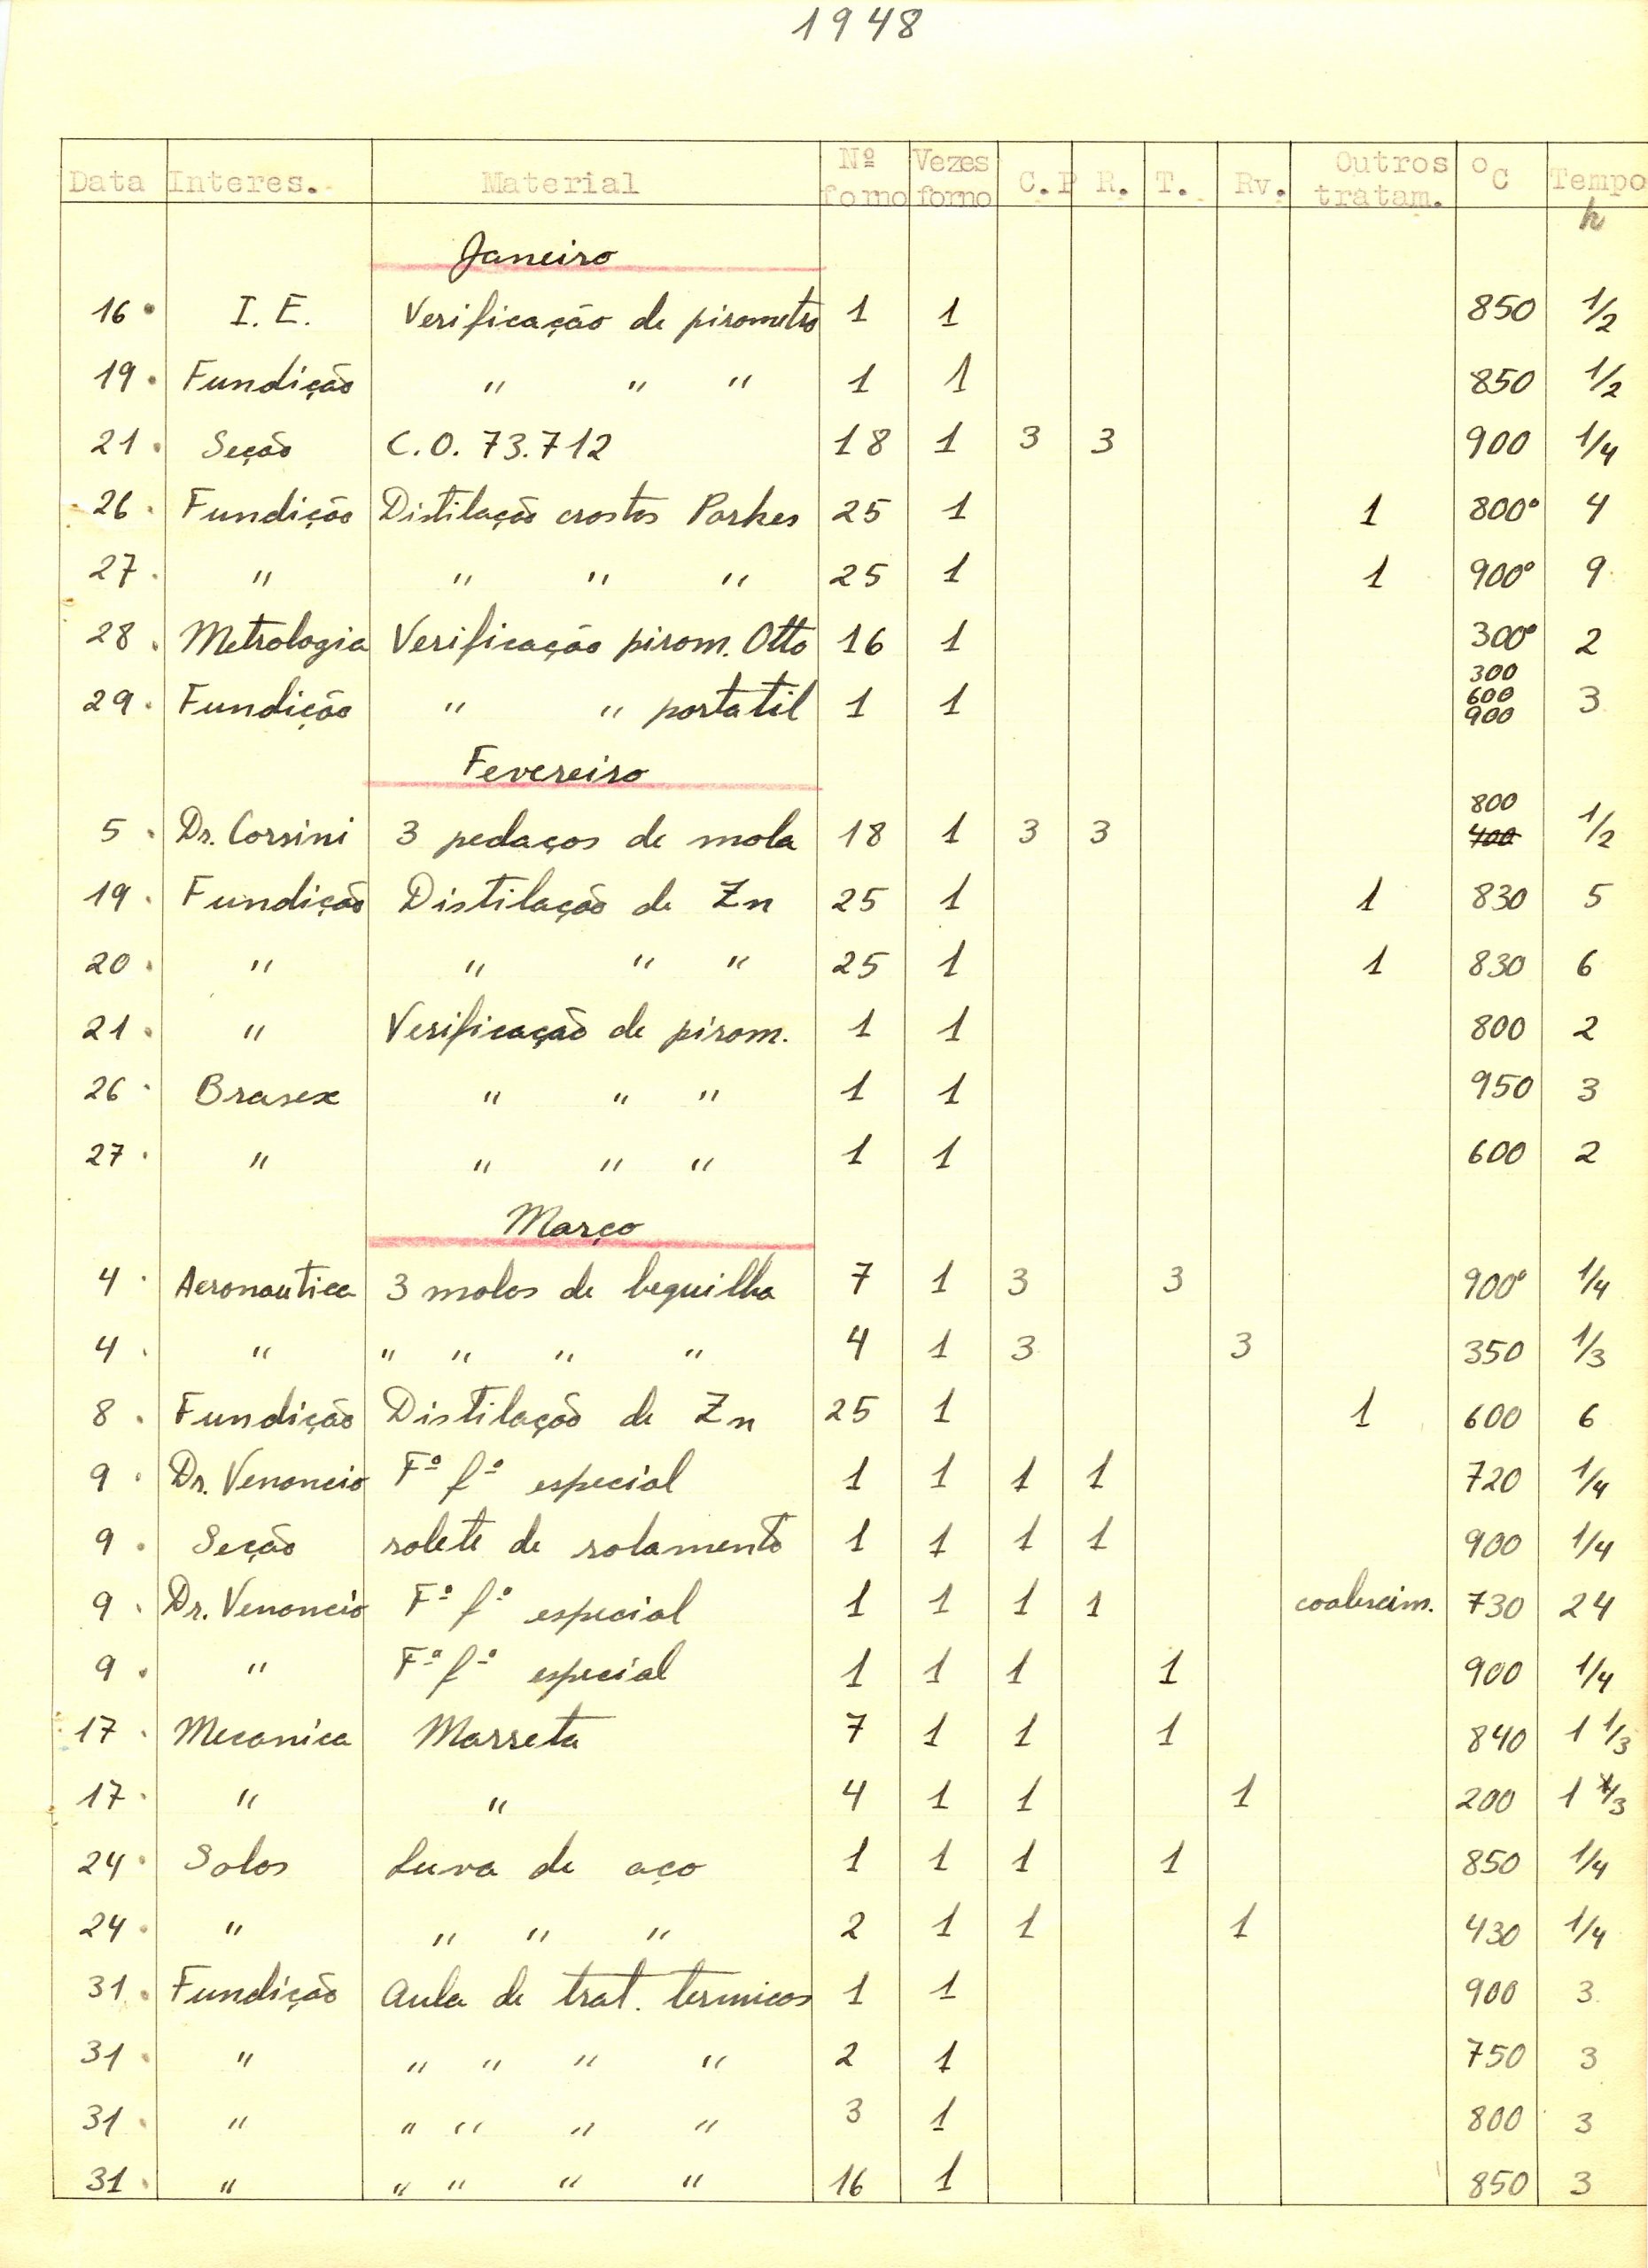 1948
Data Interes. Material Nº forno Vezes forno C.P R. T. Rv. Outros tratam. ºC Tempo
h
Janeiro
16 I. E. Verificação de pirometro 1 1 850 1/2
19 Fundição " " " 1 1 850 1/2
21 Seção C.O. 73.712 18 1 3 3 900 1/4
26 Fundição Distilação crostas Parkes 25 1 1 800° 4
27 " " " " 25 1 1 900° 9
28 Metrologia Verificação pirom. Otto 16 1 300° 2
29 Fundição " " portatil 1 1 300 600 900 3
Fevereiro
5 Dr. Corsini 3 pedaços de mola 18 1 3 3 800 400 1/2
19 Fundição Distilação de Zn 25 1 1 830 5
20 " " " " 25 1 1 830 6
21 " Verificação de pirom. 1 1 800 2
26 Brasex " " " 1 1 950 3
27 " " " " 1 1 600 2
Março
4 Aeronautica 3 molas de bequilha 7 1 3 3 900° 1/4
4 " " " " " 4 1 3 3 350 1/3
8 Fundição Distilação de Zn 25 1 1 600 6
9 Dr. Venancio Fº fº especial 1 1 1 1 720 1/4
9 Seção rolete de rolamento 1 1 1 1 900 1/4
9 Dr. Venancio Fº fº especial 1 1 1 1 coalescim. 730 24
9 " Fº fº especial 1 1 1 1 900 1/4
17 Mecanica Marreta 7 1 1 1 840 1 1/3
17 " " 4 1 1 1 200 1 1/3
24 Solos Luva de aço 1 1 1 1 850 1/4
24 " " " " 2 1 1 1 430 1/4
31 Fundição Aula de trat. termicos 1 1 900 3
31 " " " " " 2 1 750 3
31 " " " " " 3 1 800 3
31 " " " " " 16 1 850 3